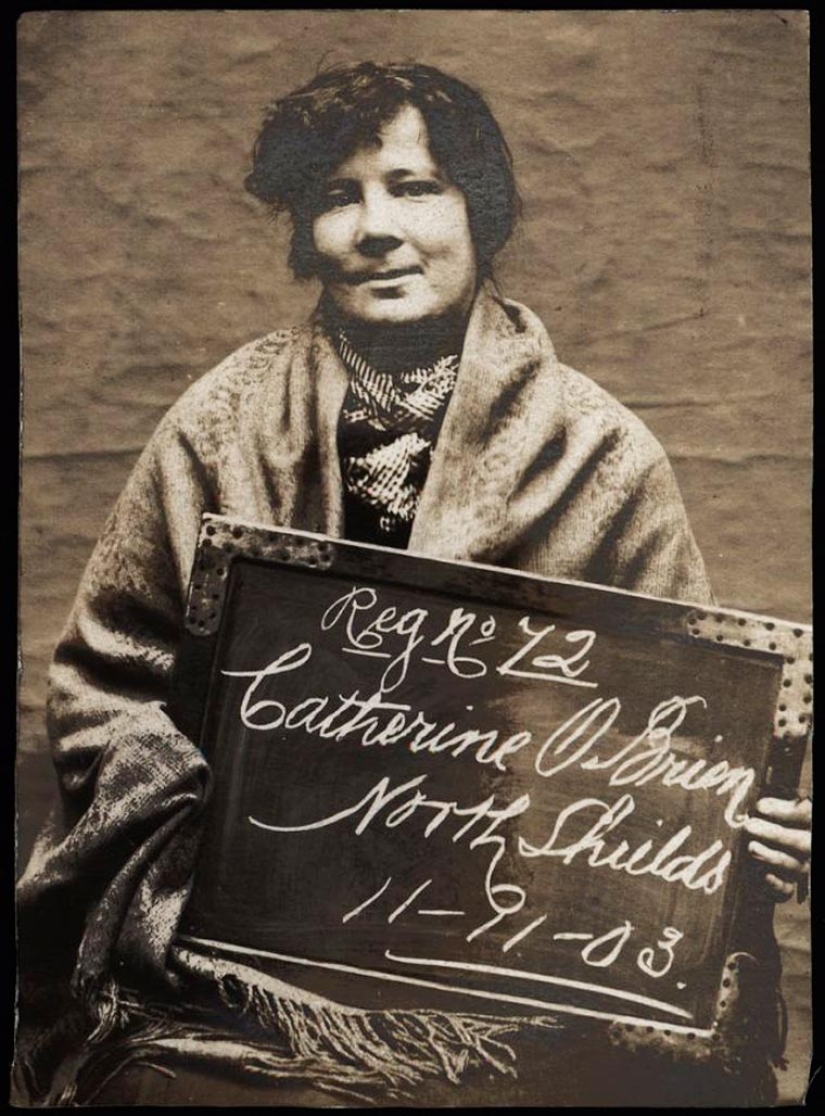 Reg no 72
Catherine O'Brien
North Shields
11-11-03.